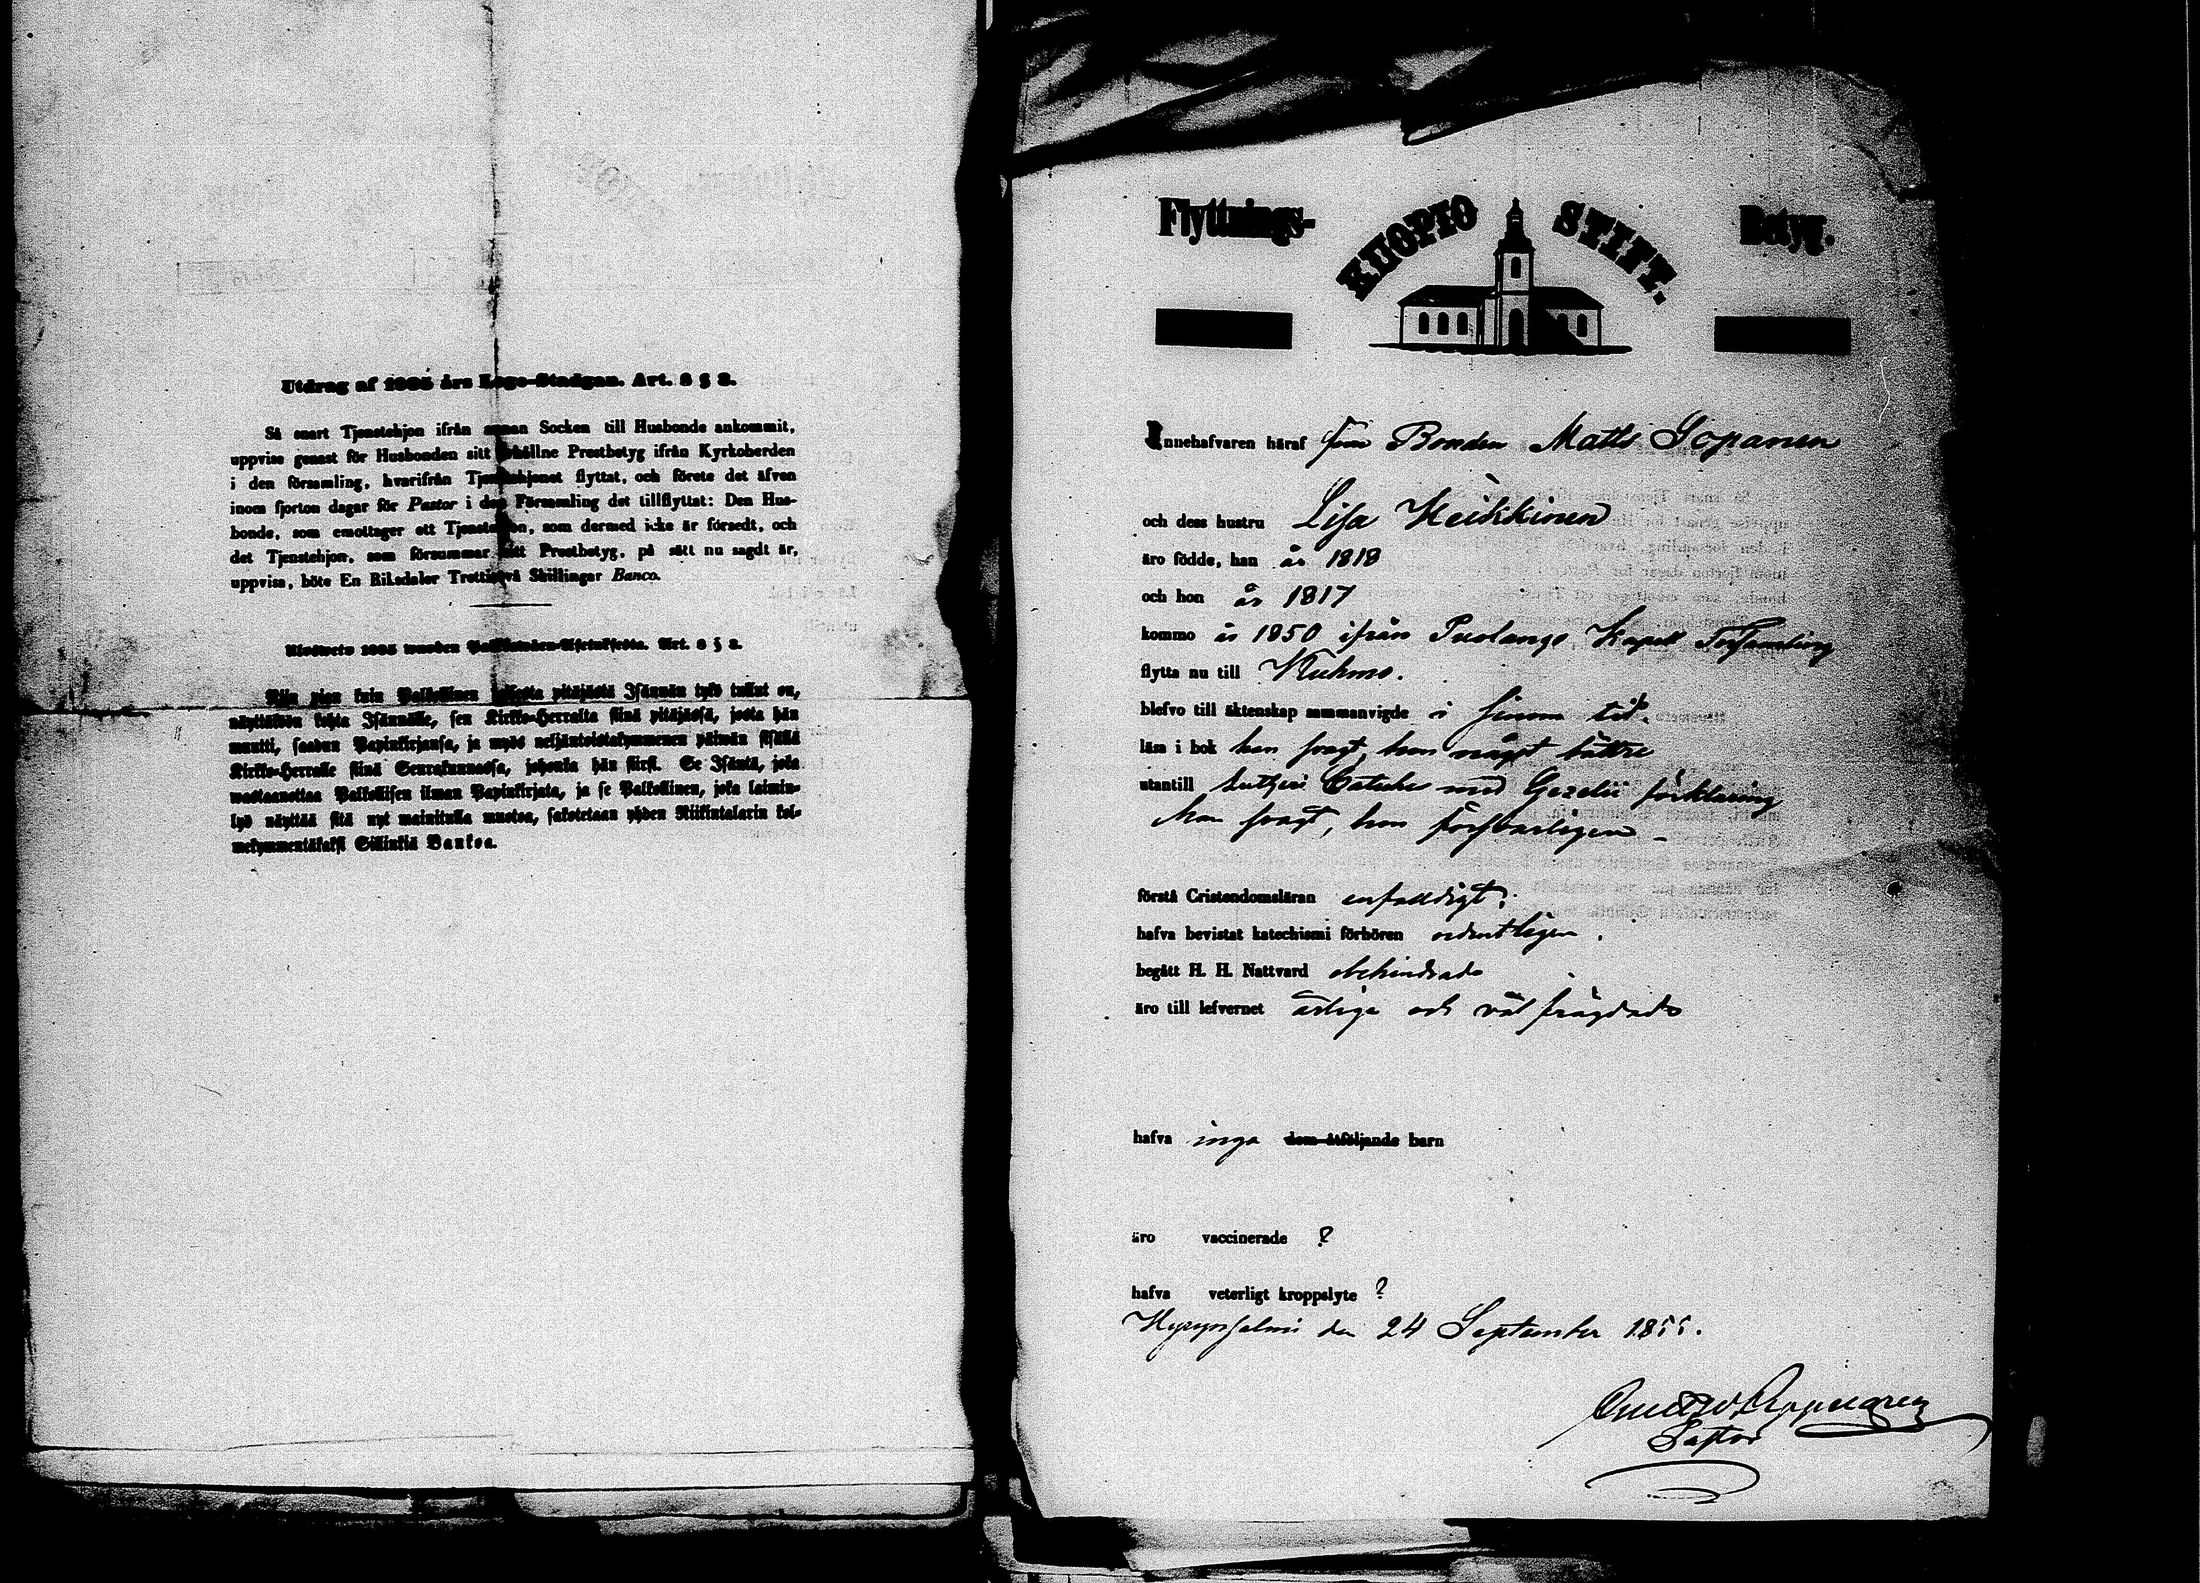 Utdrag af 1805 års Lego-Stadgan. Art. 8 § 2.
Så snart Tjenstehjon ifrån annan Socken till Husbonde ankommit,
uppvise genast för Husbonden sitt erhållne Prestbetyg ifrån Kyrkoherden
i den församling, hvarifrån Tjenstehjonet flyttat, och förete det äfven
inom fjorton dagar för Pastor i den Församling det tillflyttat: Den Hus-
bonde, som emottager ett Tjenstehjon, som dermed icke är försedt, och
det Tjenstehjon, som försummar sitt Prestbetyg, på sätt nu sagdt är,
uppvisa, böte En Riksdaler Trettiotvå Skillingar Banco.
Ulosweto 1805 wuoden Palkkawäen-Asetuksesta. Art. 8 § 2.
Niin pian kuin Palkollinen toisesta pitäjästä Isännän tykö tullut on,
näyttäköön kohta Isännälle, sen Kirkko-Herralta siinä pitäjässä, josta hän
muutti, saadun Papinkirjansa, ja myös neljäntoistakymmenen päiwän sisällä
Kirkko-Herralle siinä Seurakunnassa, johonka hän siirsi. Se Isäntä, joka
wastaanottaa Palkollisen ilman Papinkirjata, ja se Palkollinen, joka laimin-
lyö näyttää sitä nyt mainitulla muotoa, sakotetaan yhden Riikintalarin kol-
mekymmentäkaksi Sillinkiä Bankoa.
Flyttnings- KUOPIO STIFT. Betyg.
Innehafvaren häraf Bonden Matts
och dess hustru Lisa Heikkinen
äro födde, han år 1818
och hon år 1817
kommo år 1850 ifrån Puolango Kapell Församling
flytta nu till Kuhmo.
blefvo till äktenskap sammanvigde i sinom tid.
läsa i bok han svagt, hon något bättre
utantill Lutheri Cateches med Gezelii förklaring
han svagt, hon försvarligen
förstå Cristendomsläran enfaldigt;
hafva bevistat katechismi förhören ordentligen.
begått H. H. Nattvard obehindrade
äro till lefvernet ärliga och väl frägdade
hafva inga dem åtföljande barn
äro vaccinerade ?
hafva veterligt kroppslyte ?
Hyrynsalmi den 24 September 1855.
Pastor